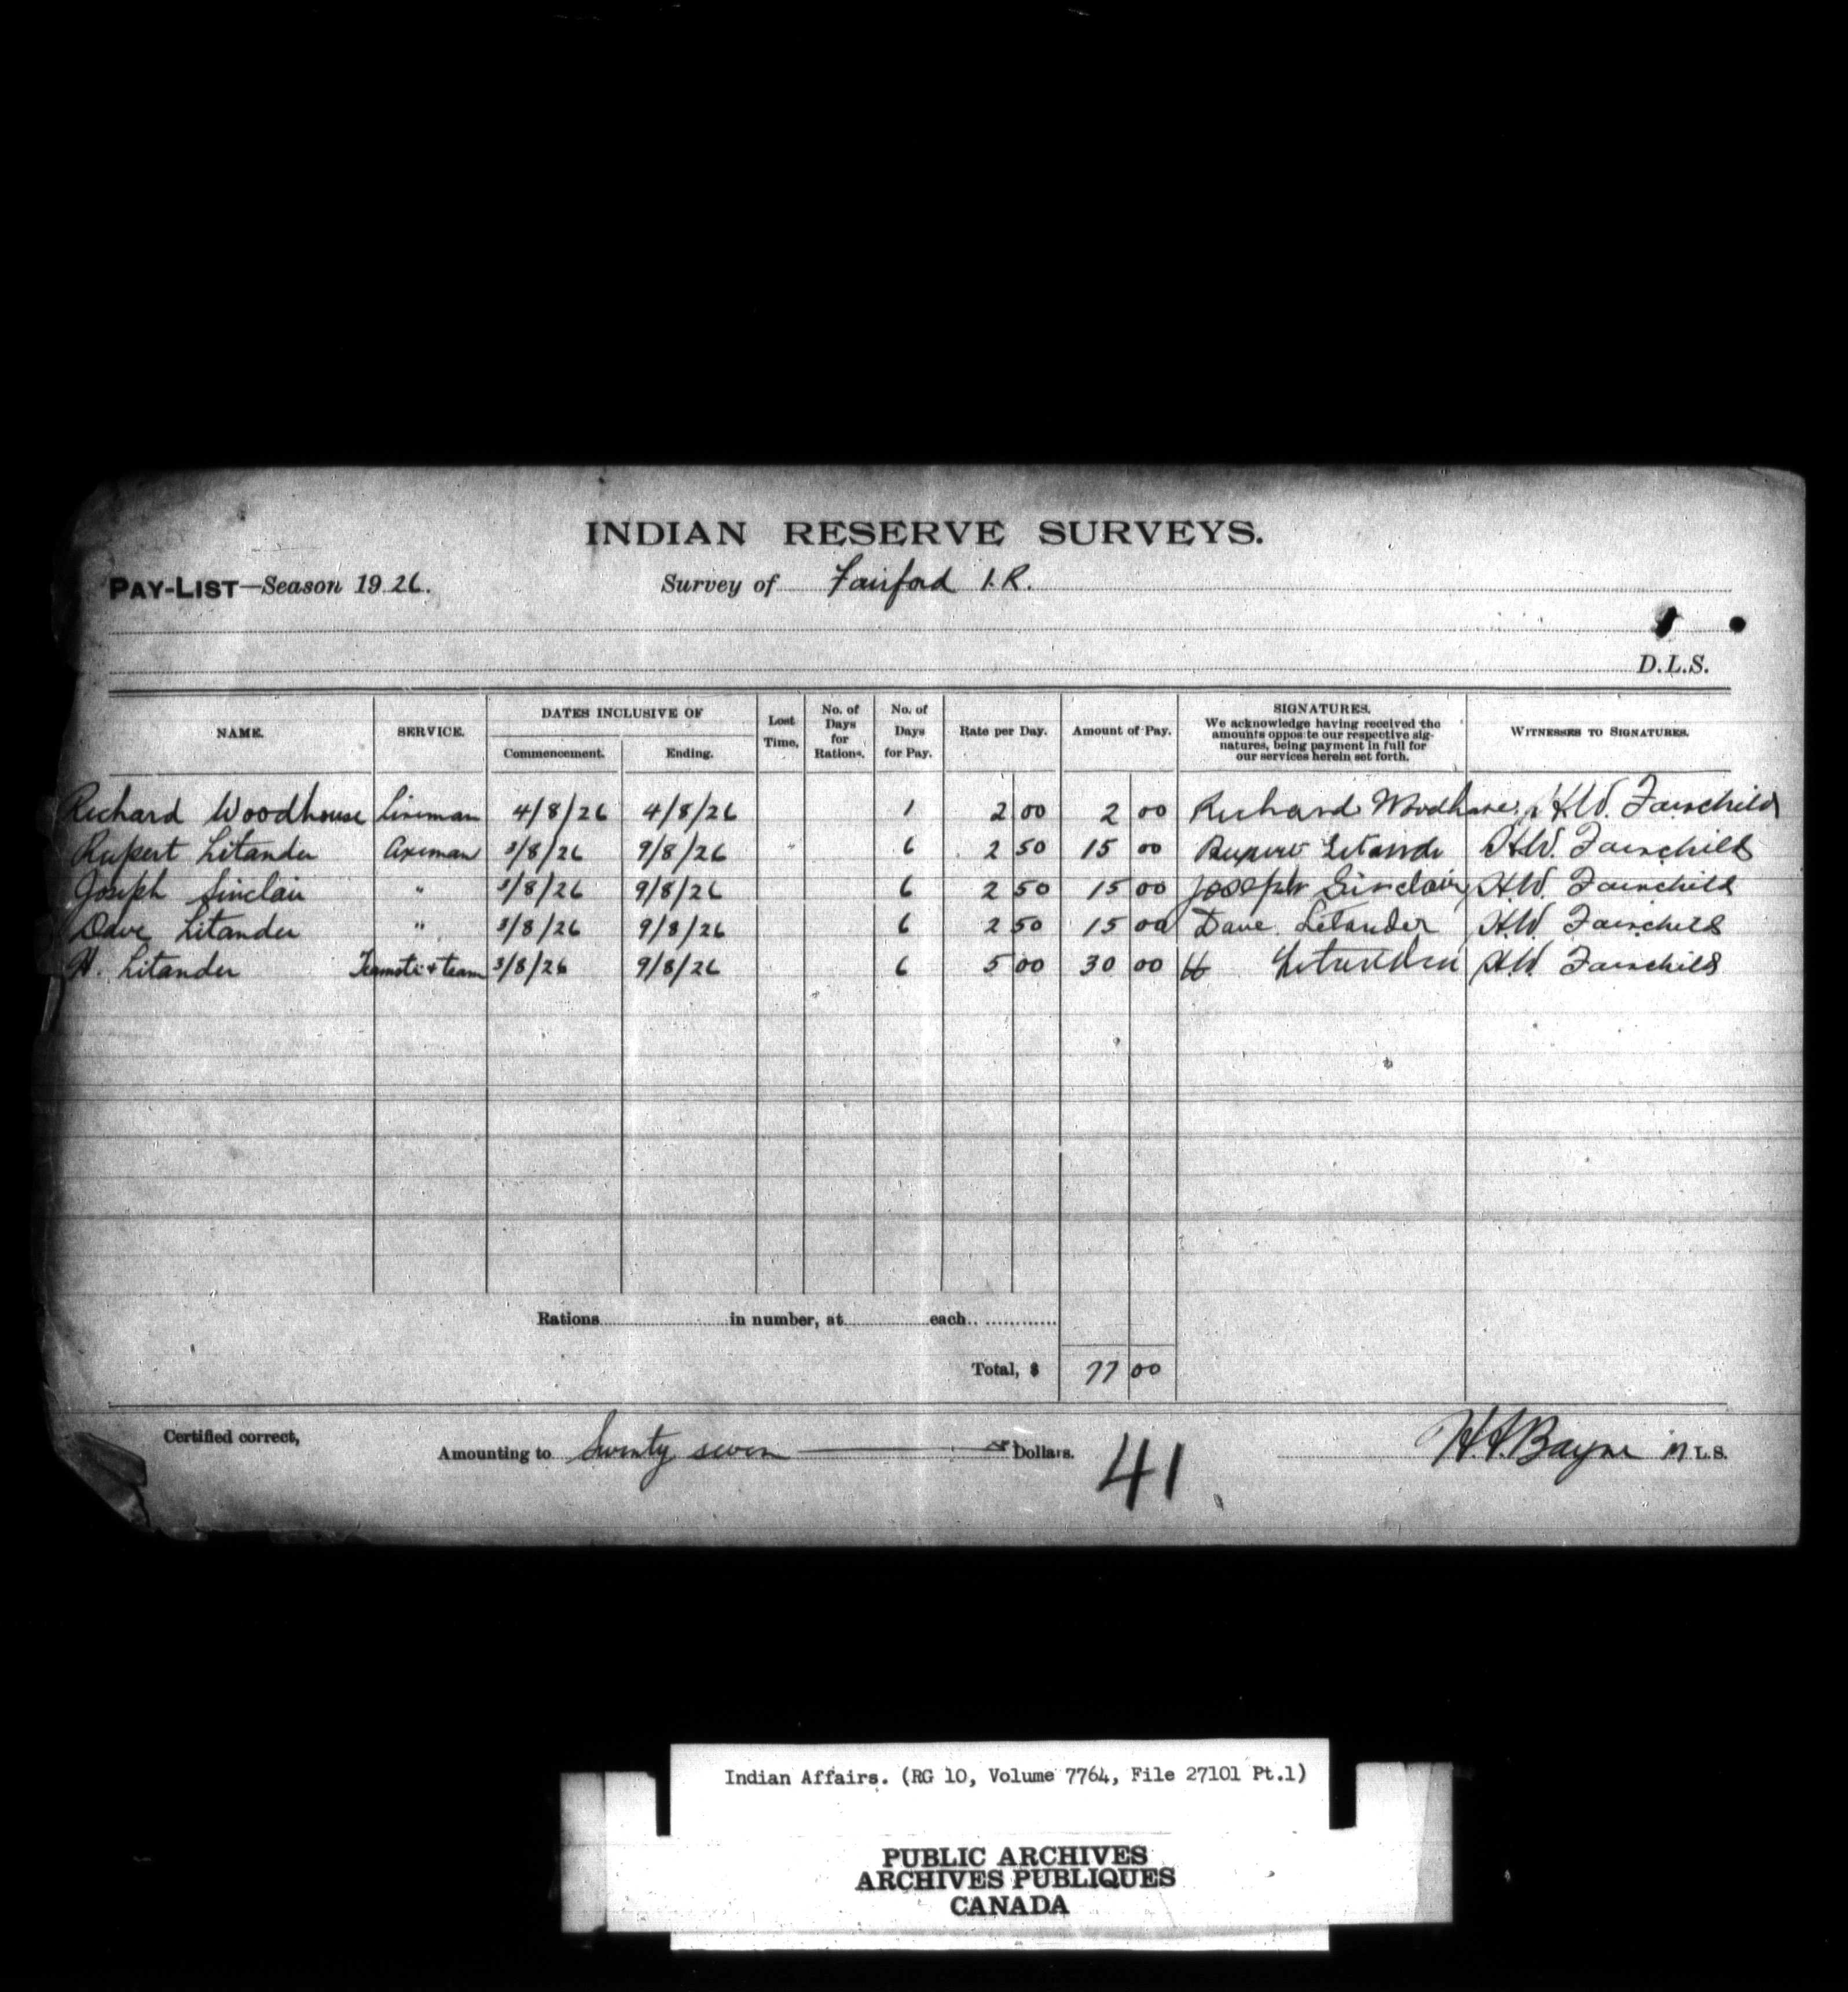 INDIAN RESERVE SURVEYS.
PAY-LIST—Season 1926. Survey of Fairford I.R.
D.L.S.
NAME. SERVICE. DATES INCLUSIVE OF Commencement. Ending. Lost Time. No. of Days for Rations. No. of Days for Pay. Rate per Day. Amount of Pay. SIGNATURES. We acknowledge having received the amounts opposite our respective signatures, being payment in full for our services herein set forth. WITNESSES TO SIGNATURES.
Richard Woodhouse Lineman 4/8/26 4/8/26 1 2 00 2 00 Richard Woodhouse H.W. Fairchild
Rupert Litander Axeman 3/8/26 9/8/26 6 2 50 15 00 Rupert Litander H.W. Fairchild
Joseph Sinclair " 3/8/26 9/8/26 6 2 50 15 00 Joseph Sinclair H.W. Fairchild
Dave Litander " 3/8/26 9/8/26 6 2 50 15 00 Dave Litander H.W. Fairchild
H. Litander Teamster + team 3/8/26 9/8/26 6 5 00 30 00 H Litander H.W. Fairchild
Rations in number, at each
Total, $ 77 00
Certified correct,
Amounting to Seventy seven Dollars. 41 M L.S.
Indian Affairs. (RG 10, Volume 7764, File 27101 Pt.1)
PUBLIC ARCHIVES
ARCHIVES PUBLIQUES
CANADA